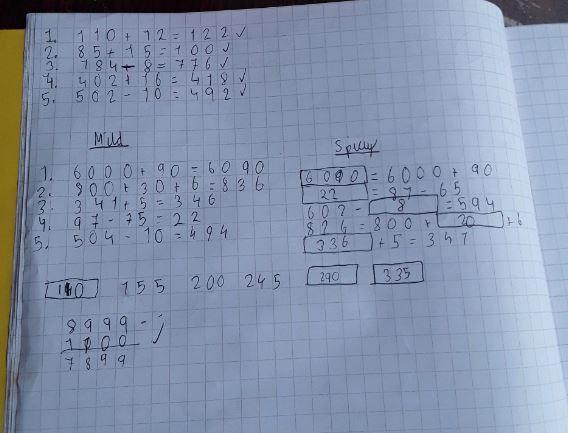 1. 110 + 12 = 122 ✓
2. 85 + 15 = 100 ✓
3. 784 - 8 = 776 ✓
4. 402 + 16 = 418 ✓
5. 502 - 10 = 492 ✓
Mild
1. 6000 + 90 = 6090
2. 800 + 30 + 6 = 836
3. 341 + 5 = 346
4. 97 - 75 = 22
5. 504 - 10 = 494
Spicy
6090 = 6000 + 90
22 = 87 - 65
602 - 8 = 594
826 = 800 + 20 + 6
336 + 5 = 347
110 155 200 245 290 335
8999 -
1100 ✓
7899